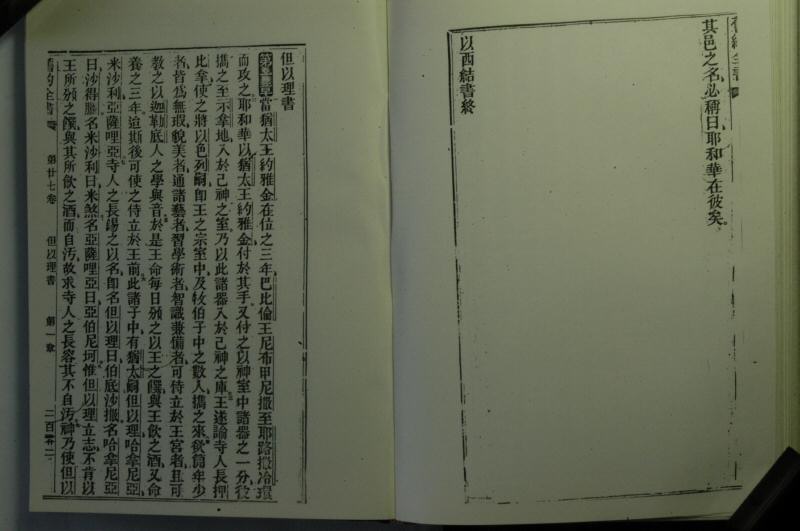 舊約全書
其邑之名必稱曰耶和華在彼矣
以西結書終
但以理書
第一章當猶太王約雅金在位之三年巴比倫王尼布甲尼撒至耶路撒冷環
而攻之耶和華以猶太王約雅金付於其手又付之以神室中諸器之一分後
攜之至示拿地入於己神之室乃以此諸器入於己神之庫王遂諭寺人長押
比拿使之將以色列嗣卽王之宗室中及牧伯子中之數人攜之來欲簡年少
者皆爲無瑕貌美者通諸藝者習學術者智識兼備者可侍立於王宮者且可
教之以迦勒底人之學與音於是王命每日頒之以王之饌與王飲之酒又命
養之三年迨斯後可使之侍立於王前此諸子中有猶太嗣但以理哈拿尼亞
米沙利亞薩哩亞寺人之長錫之以名卽名但以理曰伯底沙撒名哈拿尼亞
曰沙得臘名米沙利曰米煞名亞薩哩亞曰亞伯尼坷惟但以理立志不肯以
王所頒之饌與其所飲之酒而自汚故求寺人之長容其不自汚神乃使但以
舊約全書 第廿七卷 但以理書 第一章 二百零二